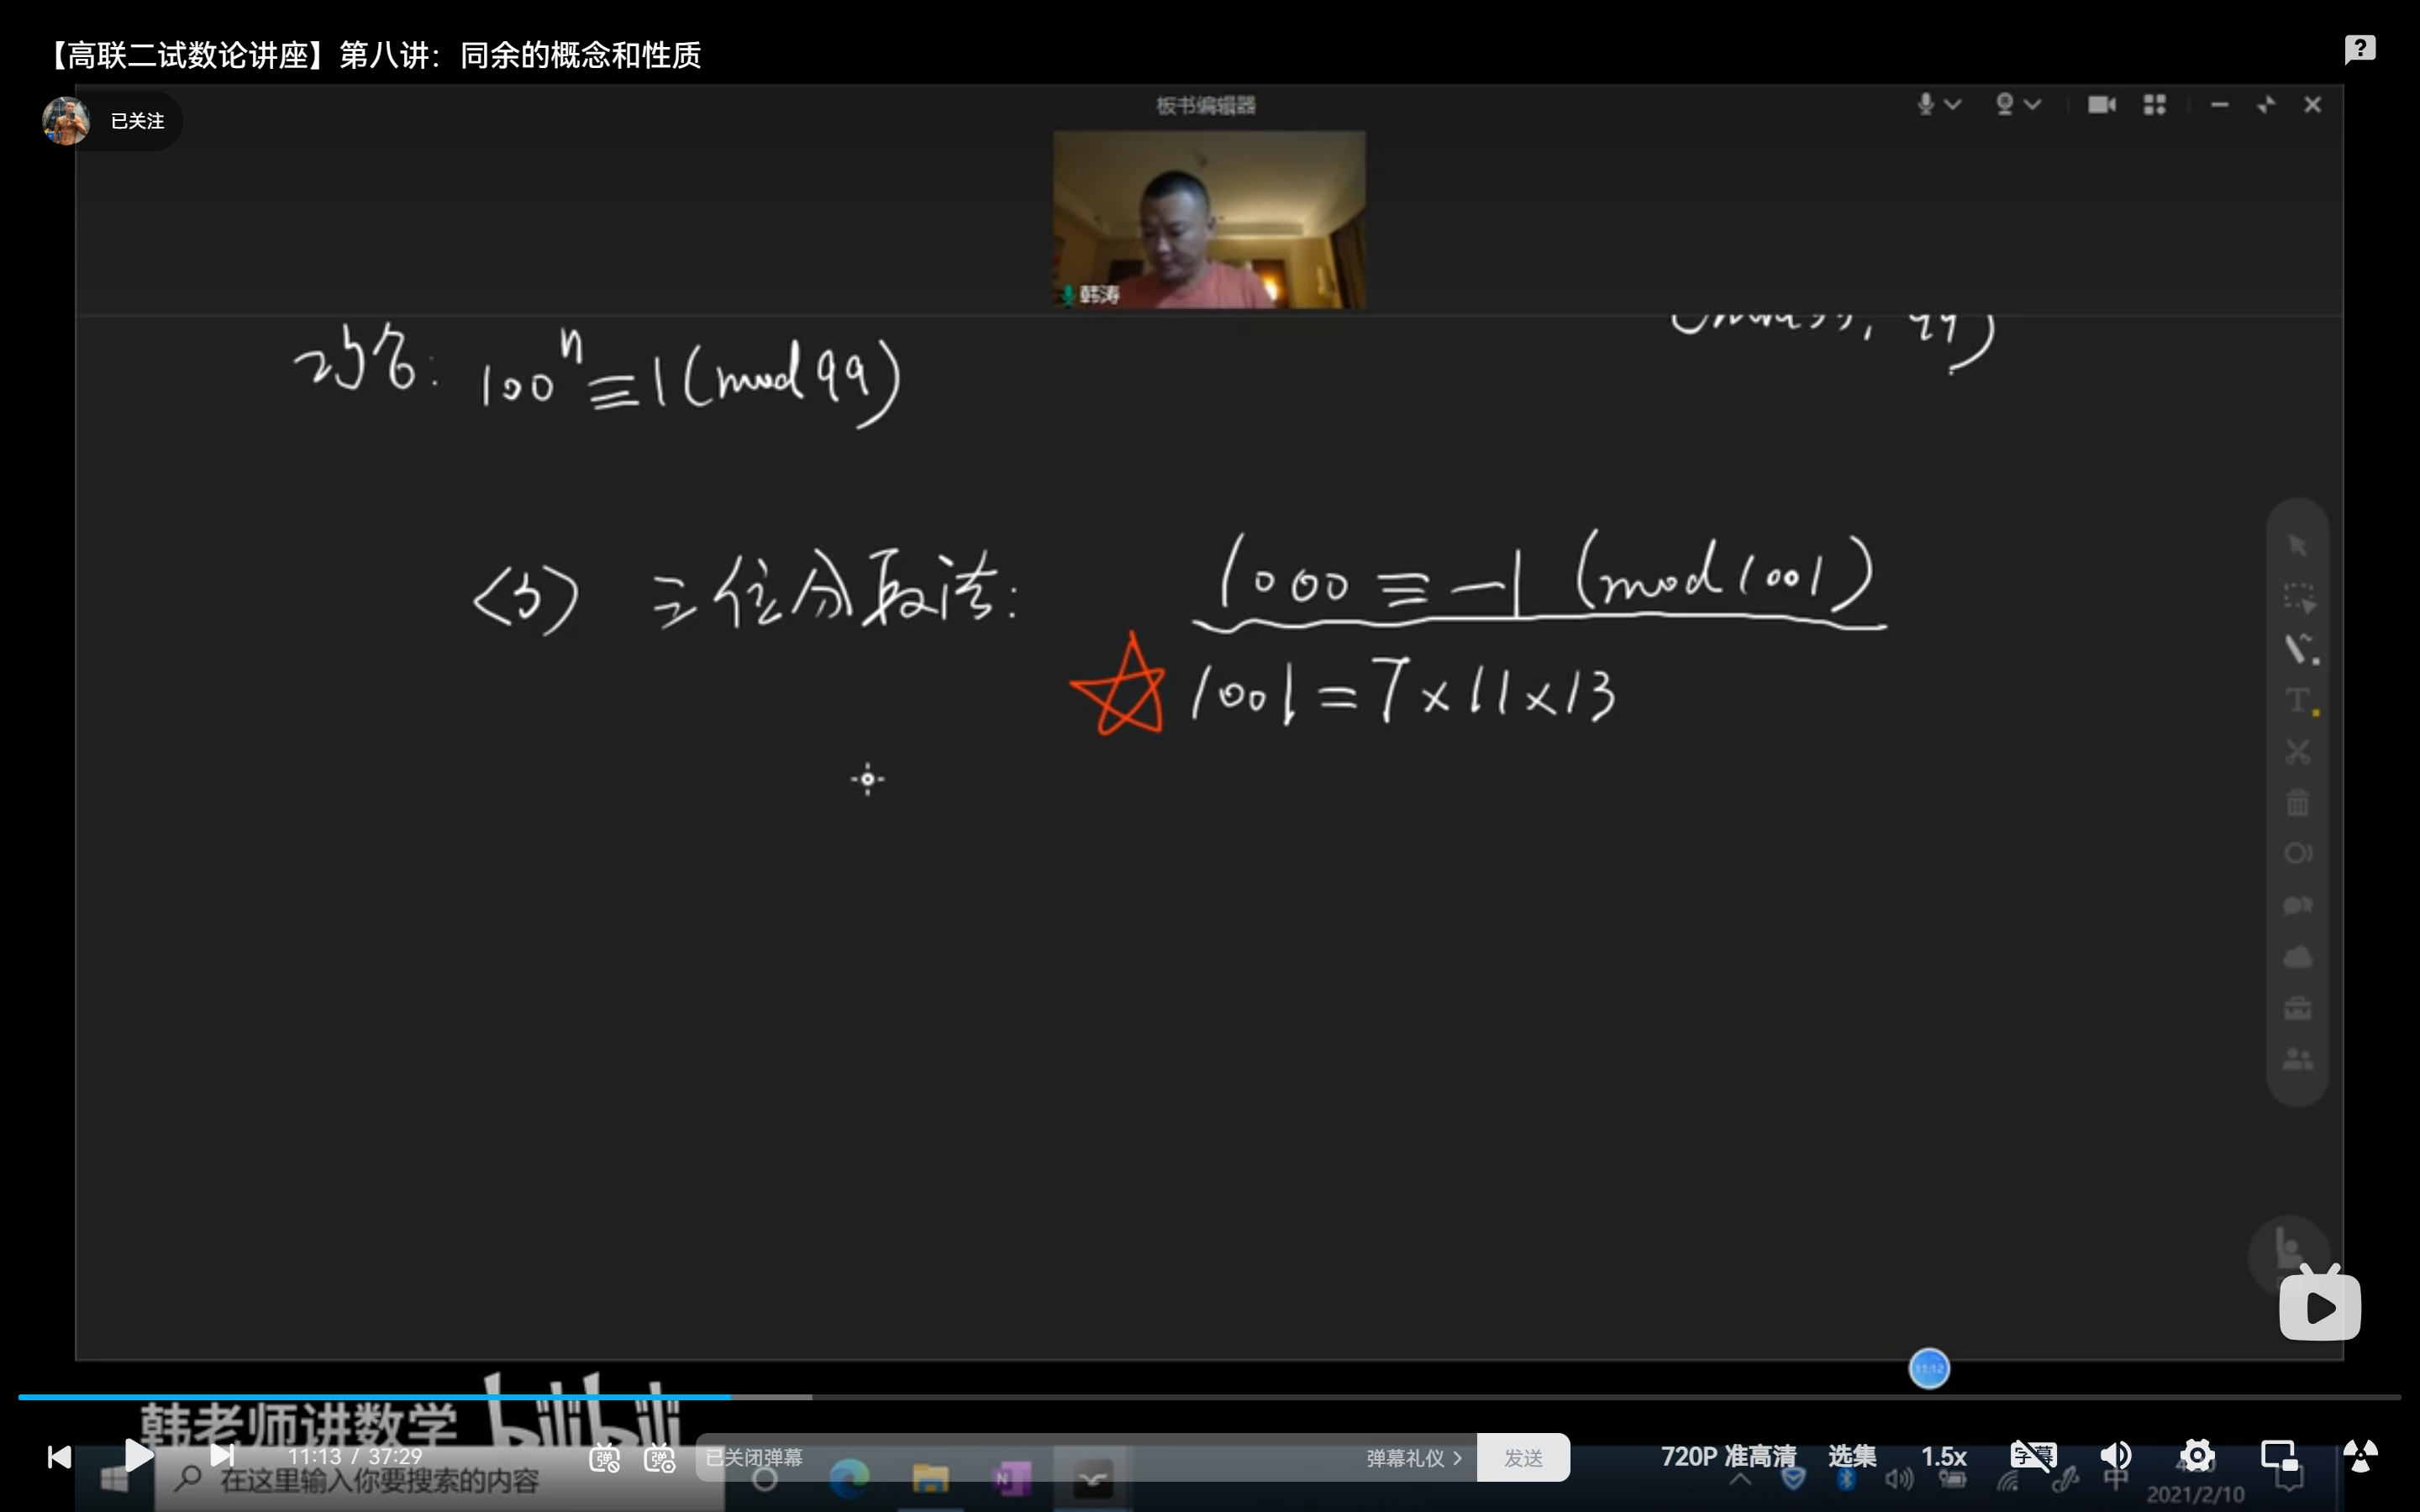 【高联二试数论讲座】第八讲：同余的概念和性质
已关注
板书编辑器
韩涛
100ⁿ≡1(mod 99)
99)
<3> 三位分段法:
1000≡-1 (mod 1001)
1001=7×11×13
11:12
韩老师讲数学 bilibili
11:13 / 37:29
弹
弹
已关闭弹幕
弹幕礼仪 >
发送
720P 准高清
选集
1.5x
字幕
在这里输入你要搜索的内容
N
中
2021/2/10